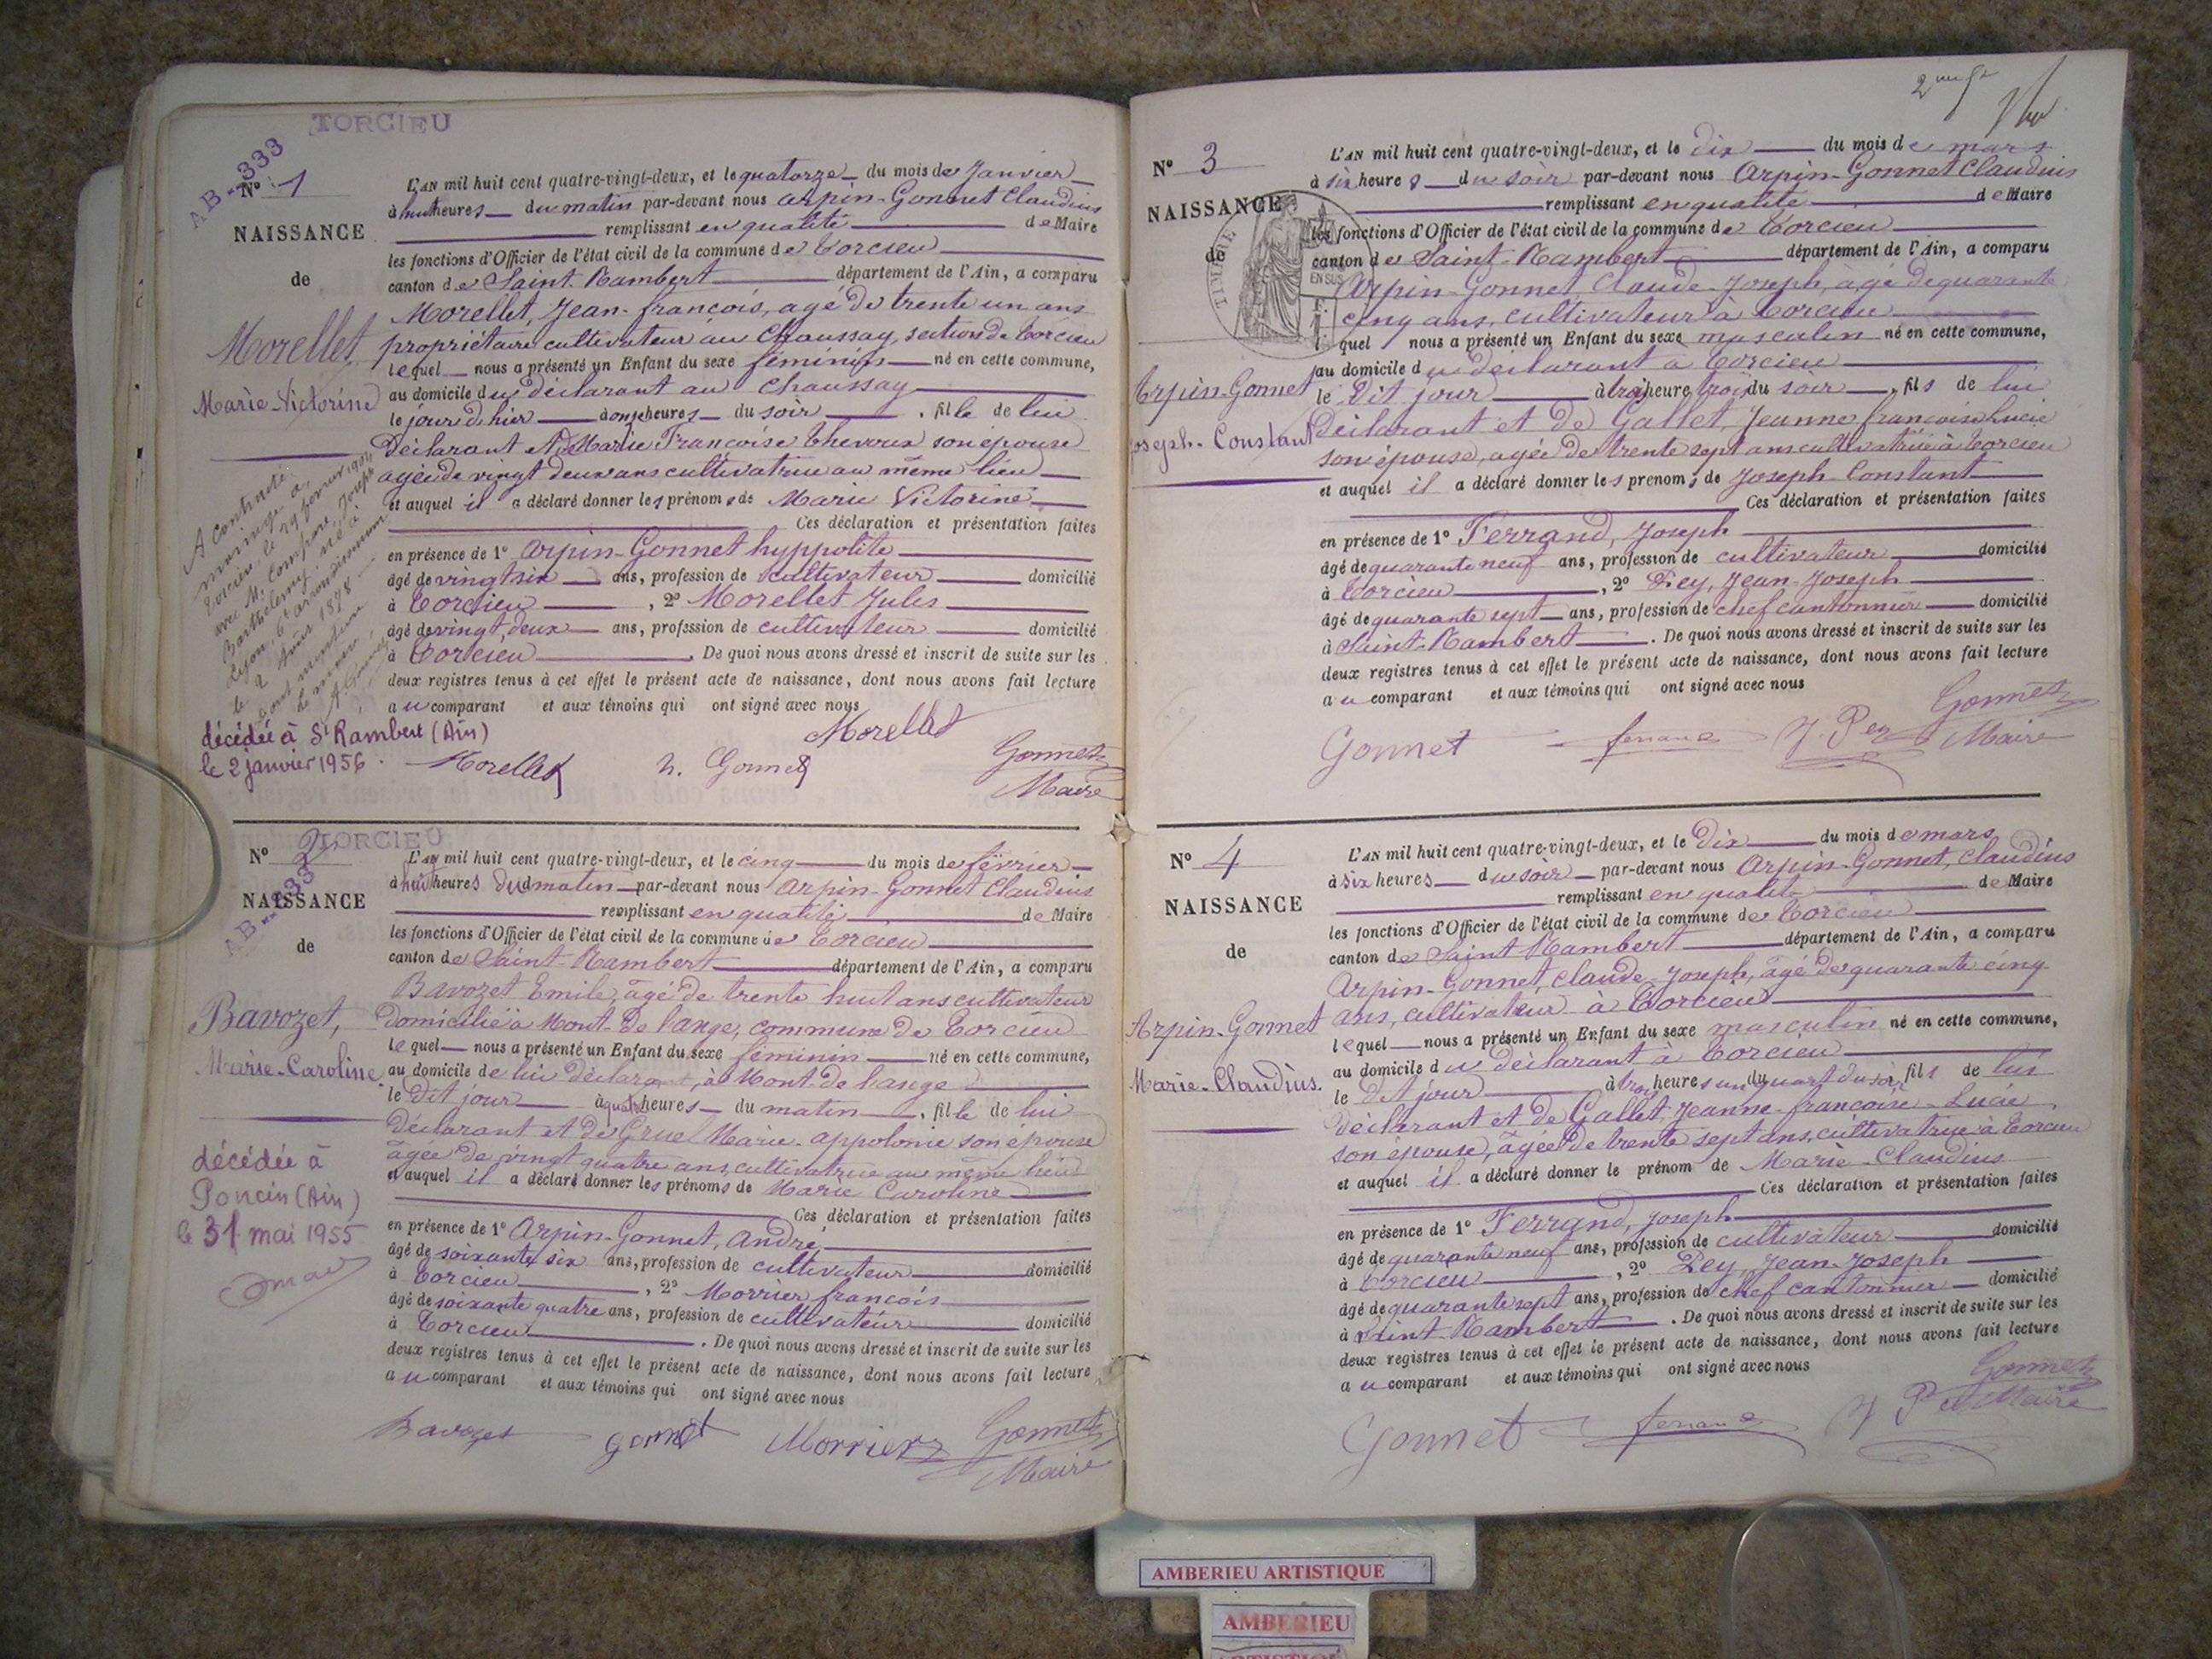 TORCIEU
AB-333
N° 1
NAISSANCE
de
Morellet
Marie-Victorine
L'AN mil huit cent quatre-vingt-deux, et le quatorze du mois de Janvier
à huit heures du matin par-devant nous Arpin-Gonnet Claudius
remplissant en qualité de Maire
les fonctions d'Officier de l'état civil de la commune de Torcieu
canton de Saint-Rambert département de l'Ain, a comparu
Morellet, Jean-françois, agé de trente un ans
propriétaire cultivateur au Chaussay, section de Torcieu
lequel nous a présenté un Enfant du sexe féminin né en cette commune,
au domicile du déclarant au Chaussay
le jour d'hier à onze heures du soir, fille de lui
Déclarant et de Marie Françoise Thevoux son épouse
agée de vingt deux ans cultivatrice au même lieu
et auquel il a déclaré donner les prénoms de Marie Victorine
Ces déclaration et présentation faites
en présence de 1° Arpin-Gonnet hyppolite
âgé de vingt six ans, profession de cultivateur domicilié
à Torcieu, 2° Morellet Jules
âgé de vingt deux ans, profession de cultivateur domicilié
à Torcieu. De quoi nous avons dressé et inscrit de suite sur les
deux registres tenus à cet effet le présent acte de naissance, dont nous avons fait lecture
au comparant et aux témoins qui ont signé avec nous
A contracté
mariage à
Torcieu, le 29
avec M. Compare Joseph
Barthelemy, né à
Lyon, arrondissement
le 2 1878
dont mention
le maire,
décédée à St Rambert (Ain)
le 2 janvier 1956.
Morellet
Morellet h. Gonnet Gonnet
Maire
TORCIEU
AB-333
N° 2
NAISSANCE
de
Bavozet,
Marie-Caroline
L'AN mil huit cent quatre-vingt-deux, et le cinq du mois de février
à huit heures du matin par-devant nous Arpin-Gonnet Claudius
remplissant en qualité de Maire
les fonctions d'Officier de l'état civil de la commune de Torcieu
canton de Saint-Rambert département de l'Ain, a comparu
Bavozet Emile, âgé de trente huit ans cultivateur
domicilié à Mont-de l'ange, commune de Torcieu
lequel nous a présenté un Enfant du sexe féminin né en cette commune,
au domicile de lui déclarant, à Mont-de l'ange
le dit jour à quatre heures du matin, fille de lui
déclarant et de Gruel Marie-appolonie son épouse
âgée de vingt quatre ans, cultivatrice au même lieu
et auquel il a déclaré donner les prénoms de Marie Caroline
Ces déclaration et présentation faites
en présence de 1° Arpin-Gonnet, André
âgé de soixante six ans, profession de cultivateur domicilié
à Torcieu, 2° Morrier françois
âgé de soixante quatre ans, profession de cultivateur domicilié
à Torcieu. De quoi nous avons dressé et inscrit de suite sur les
deux registres tenus à cet effet le présent acte de naissance, dont nous avons fait lecture
au comparant et aux témoins qui ont signé avec nous
décédée à
Poncin (Ain)
le 31 mai 1955
Bavozet gonnet Morrier Gonnet
Maire
N° 3
NAISSANCE
de
Arpin-Gonnet
Joseph-Constant
TIMBRE
EN SUS
L'AN mil huit cent quatre-vingt-deux, et le dix du mois de mars
à six heures du soir par-devant nous Arpin-Gonnet Claudius
remplissant en qualité de Maire
les fonctions d'Officier de l'état civil de la commune de Torcieu
canton de Saint-Rambert département de l'Ain, a comparu
Arpin-Gonnet, Claude-Joseph, âgé de quarante
cinq ans, cultivateur à Torcieu
lequel nous a présenté un Enfant du sexe masculin né en cette commune,
au domicile du déclarant à Torcieu
le dit jour à trois heure trois du soir, fils de lui
déclarant et de Gallet, Jeanne françoise lucie
son épouse, agée de trente sept ans cultivatrice à Torcieu
et auquel il a déclaré donner les prénoms de Joseph-Constant
Ces déclaration et présentation faites
en présence de 1° Ferrand, Joseph
âgé de quarante neuf ans, profession de cultivateur domicilié
à Torcieu, 2° Pey, Jean-Joseph
âgé de quarante sept ans, profession de chef cantonnier domicilié
à Saint-Rambert. De quoi nous avons dressé et inscrit de suite sur les
deux registres tenus à cet effet le présent acte de naissance, dont nous avons fait lecture
au comparant et aux témoins qui ont signé avec nous
Gonnet ferrand J. Pey Gonnet
Maire
N° 4
NAISSANCE
de
Arpin-Gonnet
Marie-Claudius.
L'AN mil huit cent quatre-vingt-deux, et le dix du mois de mars
à six heures du soir par-devant nous Arpin-Gonnet, Claudius
remplissant en qualité de Maire
les fonctions d'Officier de l'état civil de la commune de Torcieu
canton de Saint Rambert département de l'Ain, a comparu
Arpin-Gonnet, Claude-Joseph, âgé de quarante cinq
ans, cultivateur à Torcieu
lequel nous a présenté un Enfant du sexe masculin né en cette commune,
au domicile du déclarant à Torcieu
le dit jour à trois heures un quart du soir, fils de lui
déclarant et de Gallet, Jeanne-françoise-Lucie
son épouse, âgée de trente sept ans, cultivatrice à Torcieu
et auquel il a déclaré donner le prénom de Marie-Claudius
Ces déclaration et présentation faites
en présence de 1° Ferrand, Joseph
âgé de quarante neuf ans, profession de cultivateur domicilié
à Torcieu, 2° Pey, Jean-Joseph
âgé de quarante sept ans, profession de chef cantonnier domicilié
à Saint-Rambert. De quoi nous avons dressé et inscrit de suite sur les
deux registres tenus à cet effet le présent acte de naissance, dont nous avons fait lecture
au comparant et aux témoins qui ont signé avec nous
Gonnet ferrand J Pey Gonnet
Maire
AMBERIEU ARTISTIQUE
AMBERIEU
ARTISTIQUE